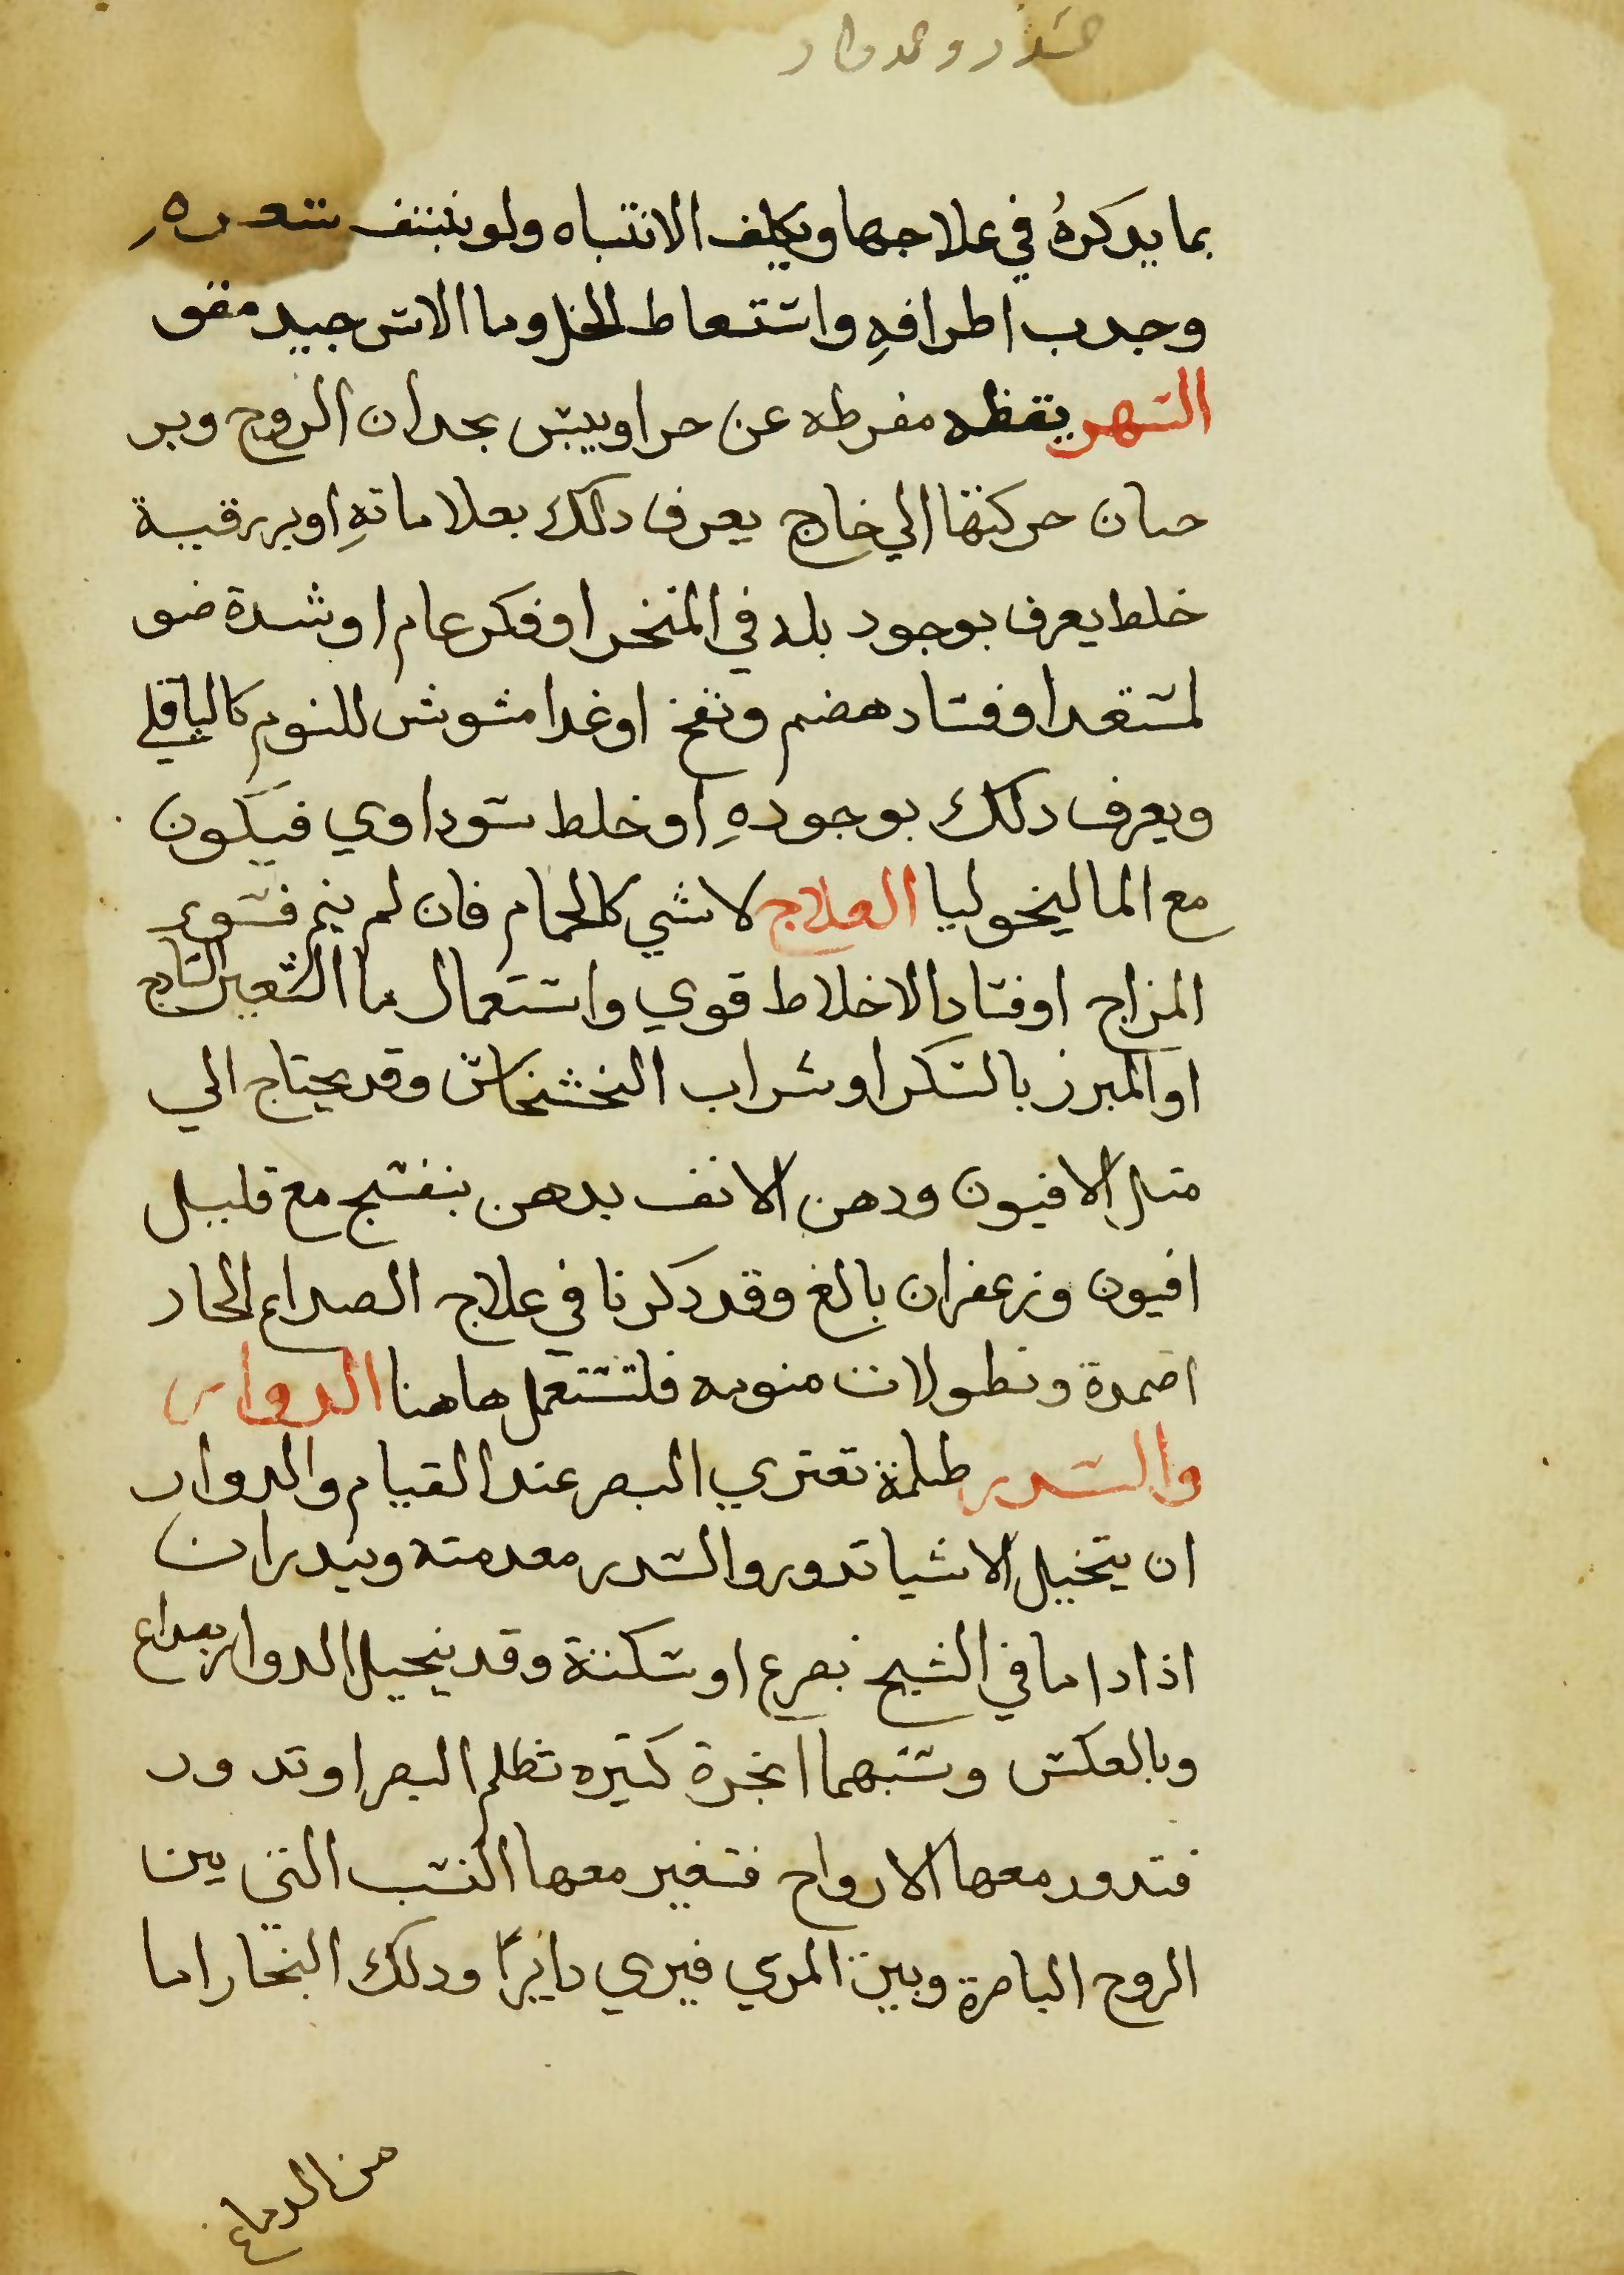 بما يدكرهُ في علاجها ويكلف الانتباه ولو بنتف شعره
وجدب اطرافهِ واستعاط الخل وما الاس جيد مفق
السهر يقظه مفرطه عن حر او يبس يحدان الروح وير
حيان حركتها الي خارج يعرف دلك بعلاماتهِ او بورقية
خلط يعرف بوجود بله في المنخر او فكر عام او شدة ضو
لمستعد او فساد هضم ونفخ او غدا مشوش للنوم كالباقلي
ويعرف دلك بوجودهِ او خلط سوداوي فيكون
مع الماليخوليا العلاج لا شي كالحمام فان لم ينم فسوء
المزاج او فساد الاخلاط قوي واستعمال ما الشعير الساذج
او المبرز بالسكر او شراب الخشخاش وقد يحتاج الي
متل الافيون ودهن الانف بدهن بنفسج مع قليل
افيون وزعفران بالغ وقد دكرنا في علاج الصداع الحار
اضمدة ونطولات منومه فلتستعمل هاهنا الدوار
والسدر ظلمة تعتري البصر عند القيام والدوار
ان يتخيل الاشيا تدور والسدر مقدمته ويندران
اذا داما في الشيخ بصرع او سكتة وقد ينحيل الدوار بصداع
وبالعكس وسببهما ابخرة كتيره تظلم البصر او تدور
فتدور معها الارواح فتغير معها النسب التي بين
الروح الباصرة وبين المري فيري دايرًا ودلك البخار اما
من الدماغ